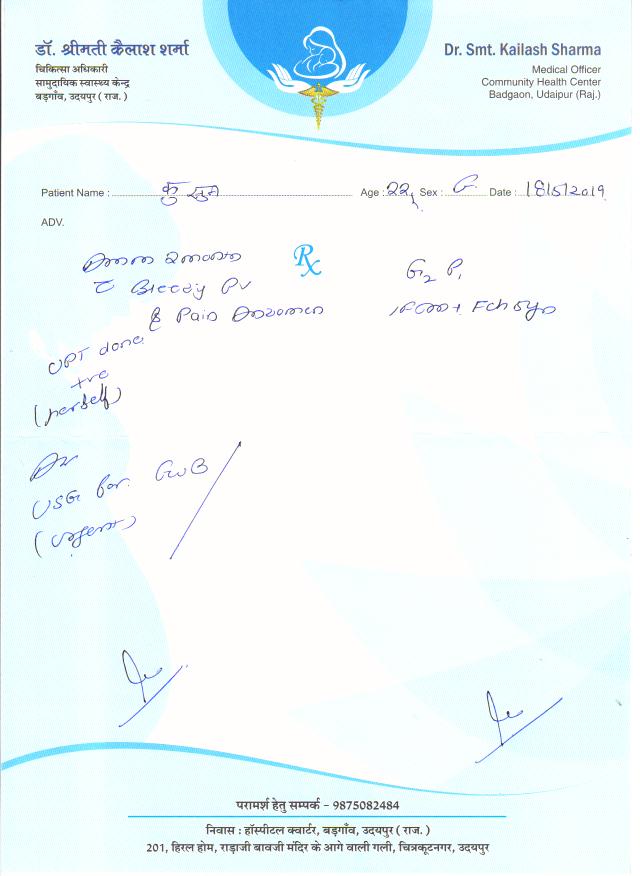 डॉ. श्रीमती कैलाश शर्मा
चिकित्सा अधिकारी
सामुदायिक स्वास्थ्य केन्द्र
बड़गाँव, उदयपुर ( राज. )
Dr. Smt. Kailash Sharma
Medical Officer
Community Health Center
Badgaon, Udaipur (Raj.)
Patient Name : कुसुम Age : 22y Sex : Date : 18/5/2019
ADV.
Rx
G2 P1
c̄ Bleeding PV
& Pain
UPT done
+ve
(herself)
Adv
USG for GWB
(urgent)
परामर्श हेतु सम्पर्क – 9875082484
निवास : हॉस्पीटल क्वार्टर, बड़गाँव, उदयपुर ( राज. )
201, हिरल होम, राड़ाजी बावजी मंदिर के आगे वाली गली, चित्रकूटनगर, उदयपुर